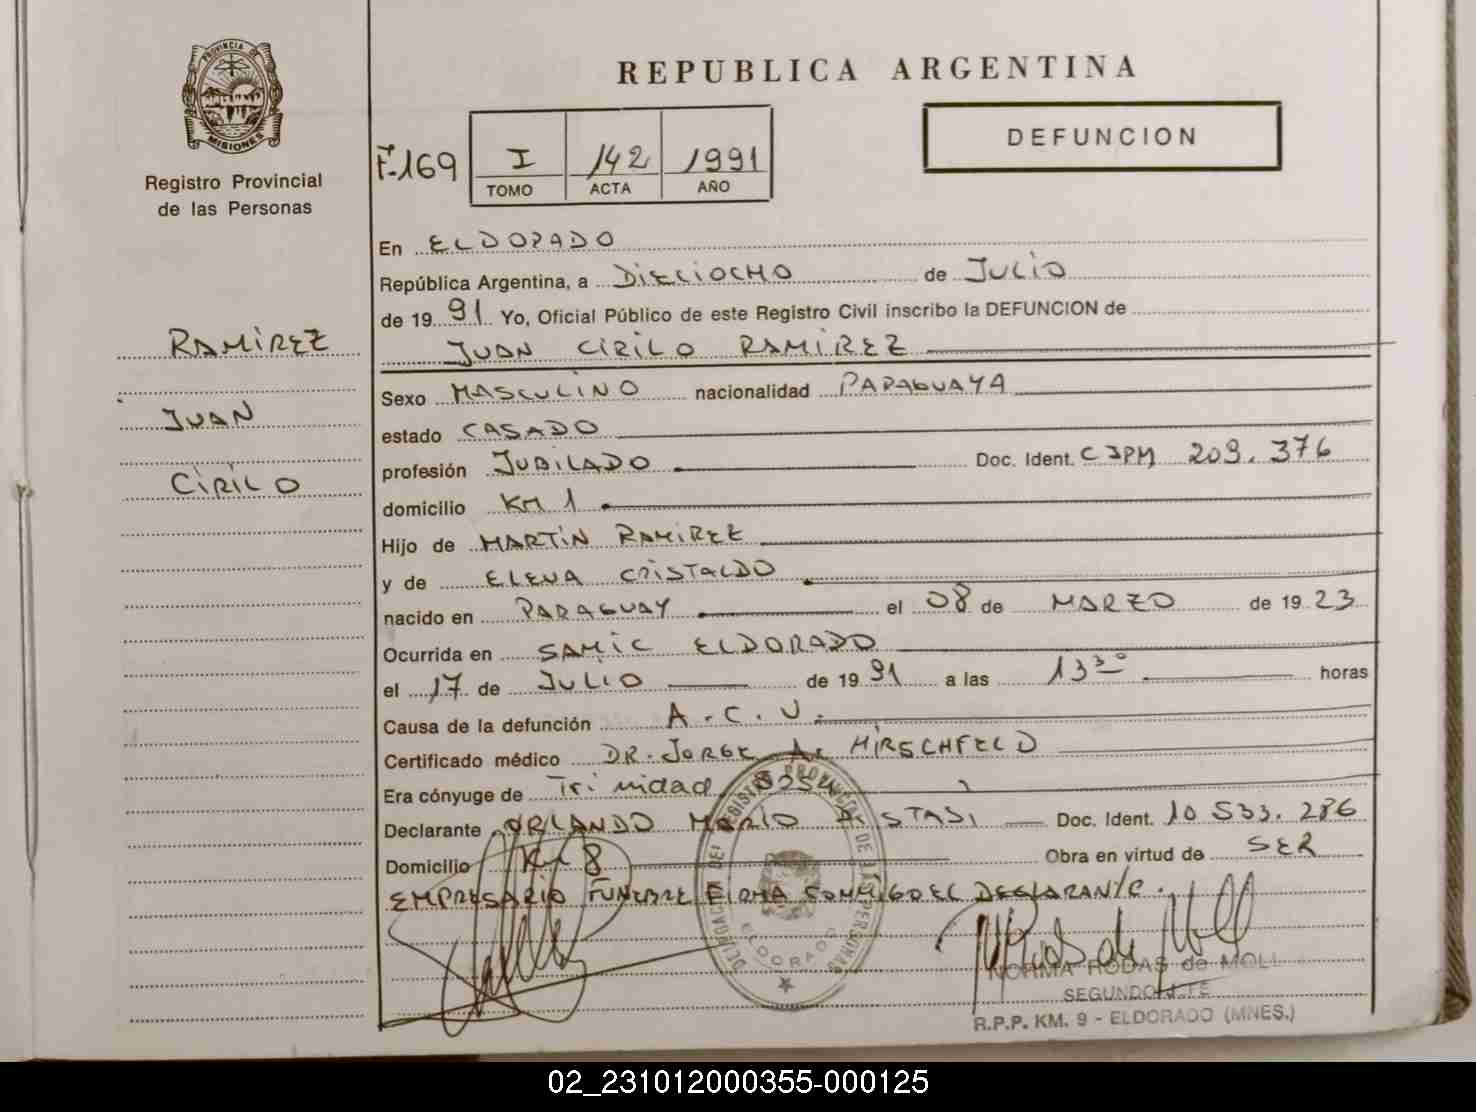 PROVINCIA DE
MISIONES
Registro Provincial
de las Personas
RAMIREZ
JUAN
CIRILO
REPUBLICA ARGENTINA
DEFUNCION
F-169 I 142 1991
TOMO ACTA AÑO
En ELDORADO
República Argentina, a DIECIOCHO de JULIO
de 19 91 Yo, Oficial Público de este Registro Civil inscribo la DEFUNCION de
JUAN CIRILO RAMIREZ
Sexo MASCULINO nacionalidad PARAGUAYA
estado CASADO
profesión JUBILADO Doc. Ident. CIPM 209.376
domicilio KM 1
Hijo de MARTIN RAMIREZ
y de ELENA CRISTALDO
nacido en PARAGUAY el 08 de MARZO de 19 23
Ocurrida en SAMIC ELDORADO
el 17 de JULIO de 19 91 a las 13 30 horas
Causa de la defunción A.C.V.
Certificado médico DR. JORGE A. HIRSCHFELD
Era cónyuge de Trinidad
Declarante ORLANDO MARIO Doc. Ident. 10 533.286
Domicilio Km 8 Obra en virtud de SER
EMPRESARIO FUNEBRE FIRMA CONMIGO EL DECLARANTE.
DELEGACION DEL REGISTRO PROVINCIAL DE LAS PERSONAS
ELDORADO
NORMA RODAS de MOLL
SEGUNDO JEFE
R.P.P. KM. 9 - ELDORADO (MNES.)
02_231012000355-000125